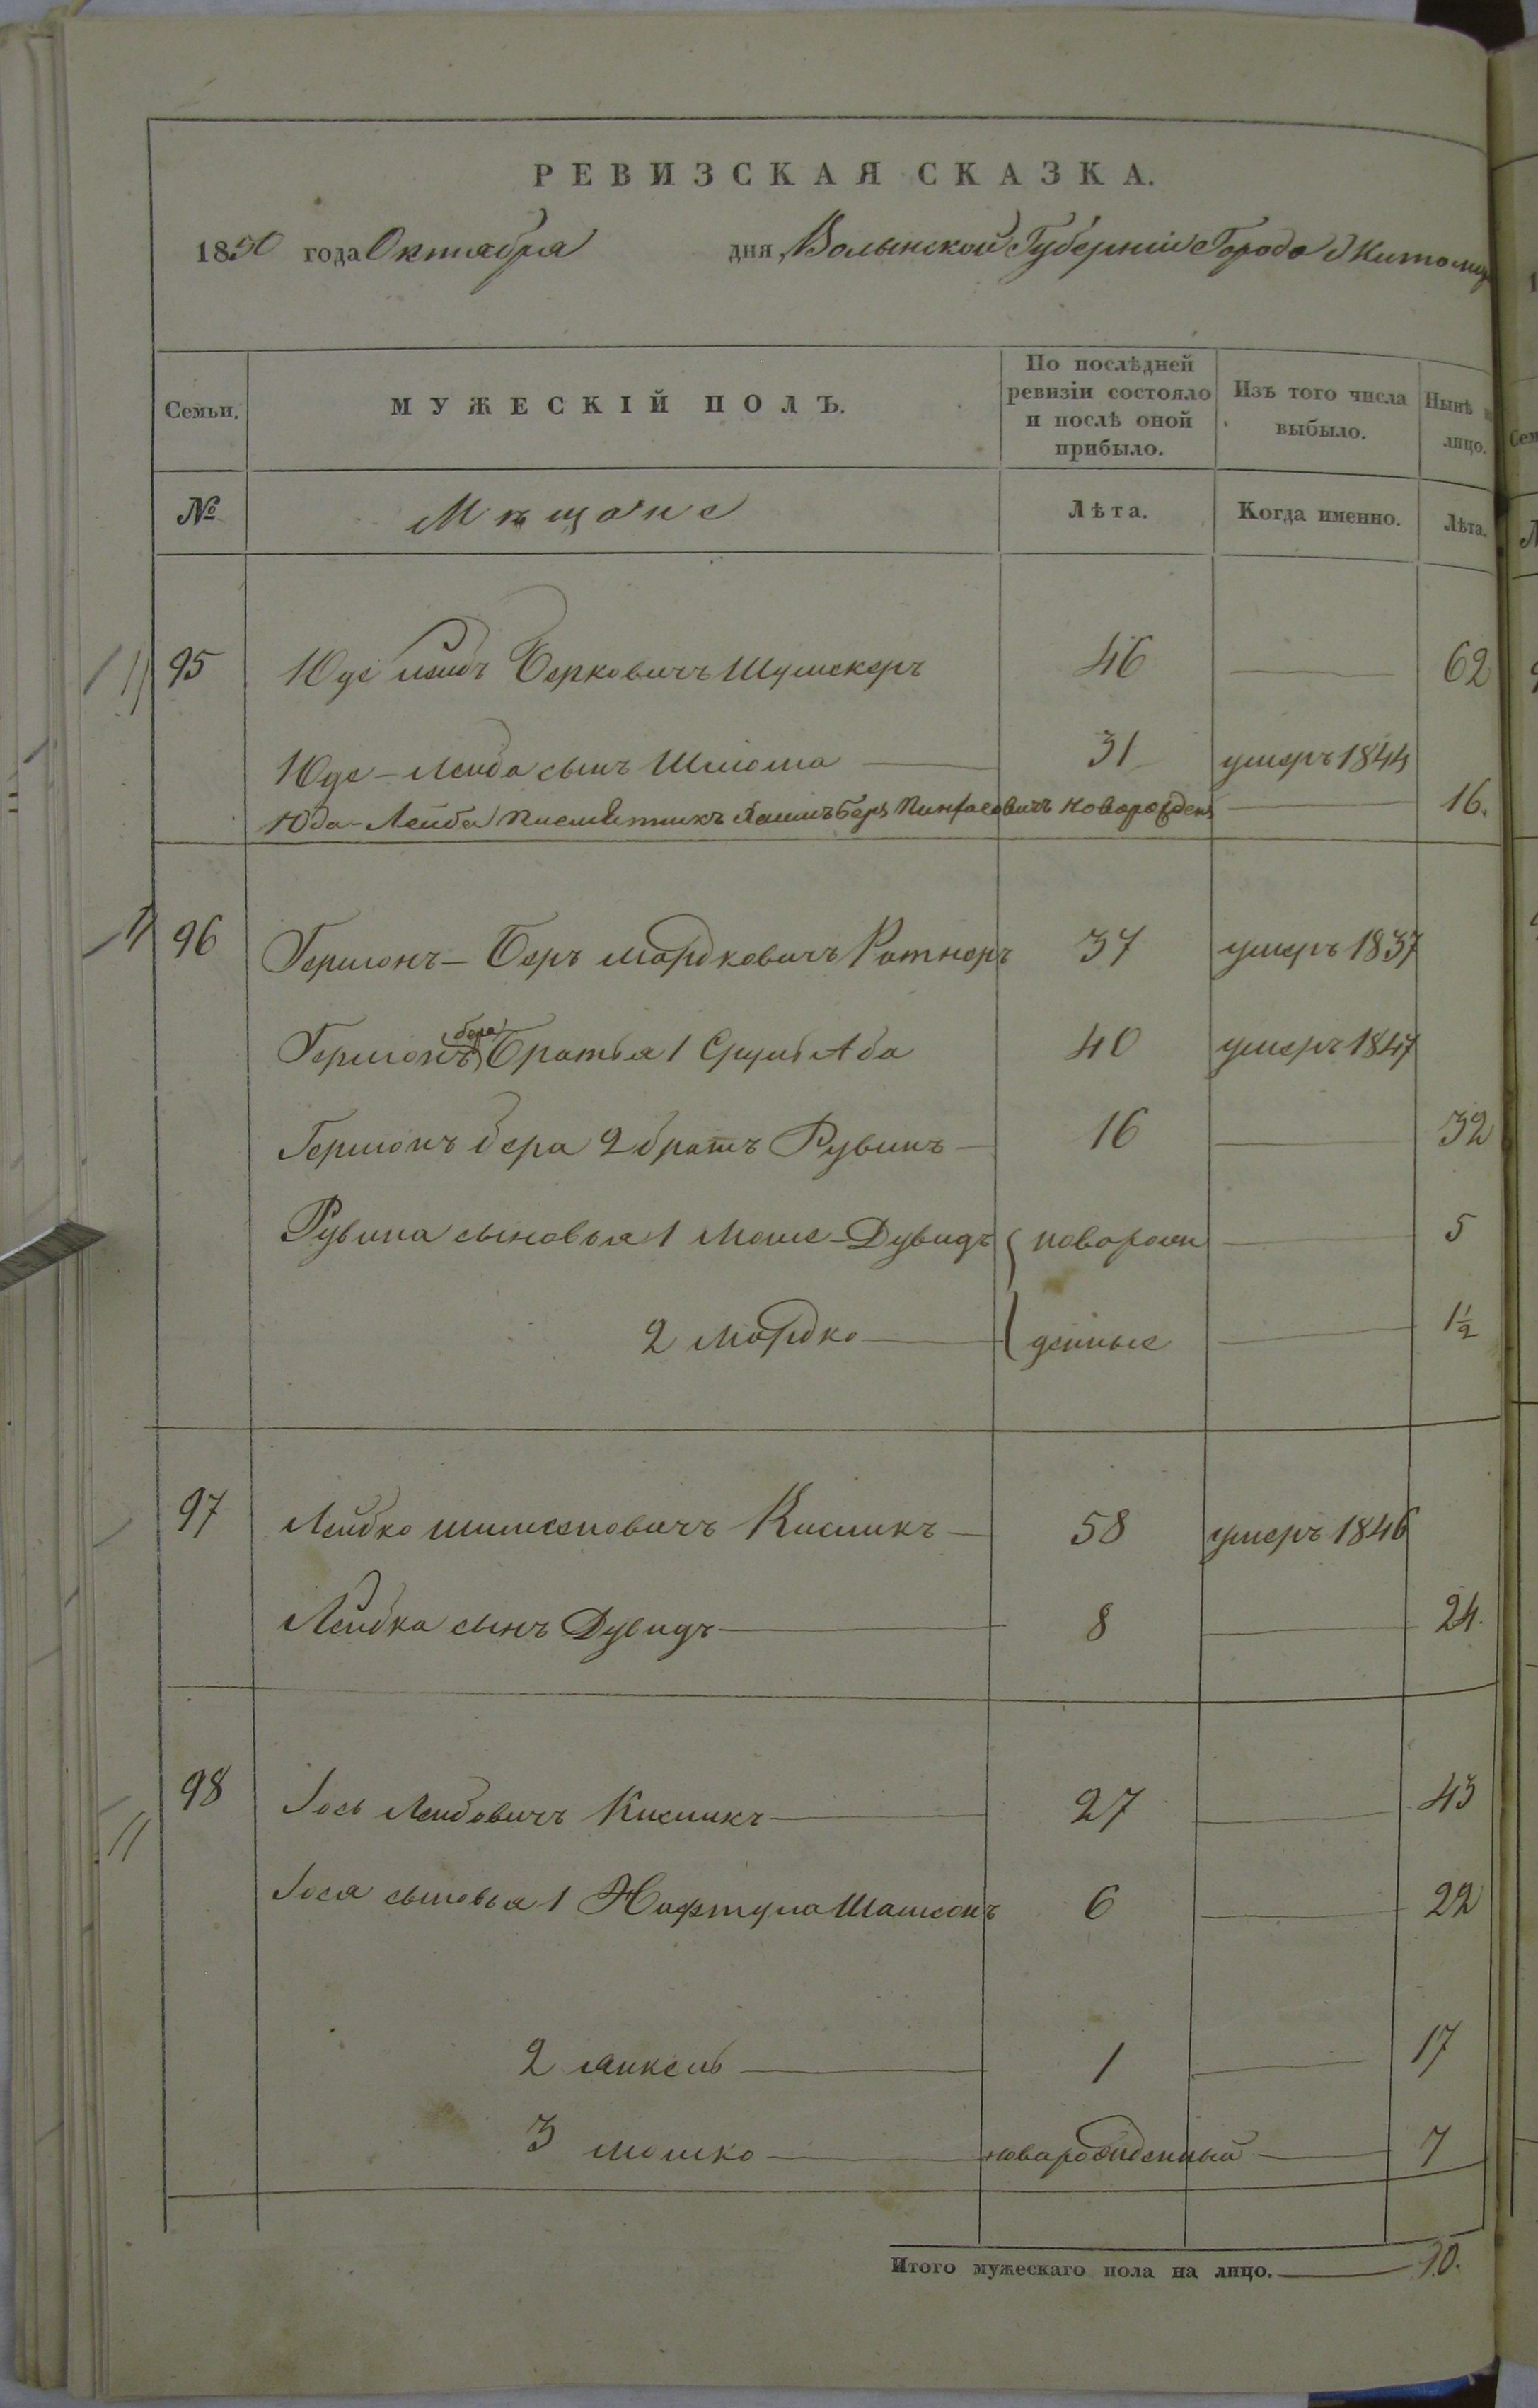 РЕВИЗСКАЯ СКАЗКА.
1850 года Октября дня Волынской Губернии Города Житомир
Семьи. МУЖЕСКІЙ ПОЛЪ. По послѣдней ревизіи состояло и послѣ оной прибыло. Изъ того числа выбыло. Нынѣ лицо.
№ Мѣщане Лѣта. Когда именно. Лѣта.
95 Юде Лейбъ Берковичъ 46 62
Юде-Лейба сынъ Шлиома 31 умеръ 1844
Юда-Лейба Хаимъ Беръ Пинхасовичъ новорожден 16.
96 Гершонъ-Беръ Мордковичъ Ратнеръ 37 умеръ 1837
Гершонъ бера Братья 1 Сруль Аба 40 умеръ 1847
Гершонъ бера 2 братъ Рувинъ 16 32
Рувина сыновья 1 Моше-Дувидъ новорож 5
2 Мордко денные 1½
97 Лейбко Кисликъ 58 умеръ 1846
Лейбка сынъ Дувидъ 8 24.
98 Іось Лейбовичъ Кисликъ 27 43
Іося сыновья 1 Нафтула Шамсонъ 6 22
2 Янкель 1 17
3 Мошко новарожденный 7
Итого мужескаго пола на лицо. 10.